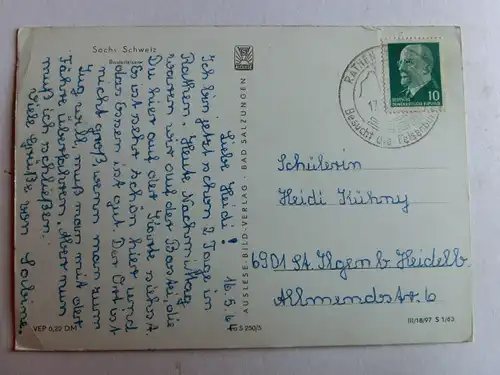 Sächs. Schweiz
Basteifelsen
16.5.64
Liebe Heidi!
Ich bin jetzt schon 2 Tage in
Rathen. Heute Nachmittag
waren wir auf der Bastei, die
Du hier auf der Karte siehst.
Es ist sehr schön hier und
das Essen ist gut. Der Ort ist
nicht groß, wenn man zum
Zug will, muß man mit der
Fähre überfahren. Aber nun
muß ich schließen.
Viele Grüße von Sabine.
VEP 0,20 DM
5 250/5
AUSLESE-BILD-VERLAG · BAD SALZUNGEN
RATHEN
17.
Besucht die Felsenbühne
DEUTSCHE
DEMOKRATISCHE REPUBLIK
10
Schülerin
Heidi Kühny
6901 St. Ilgen b. Heidelb.
Allmendstr. 6
III/18/97 S 1/63